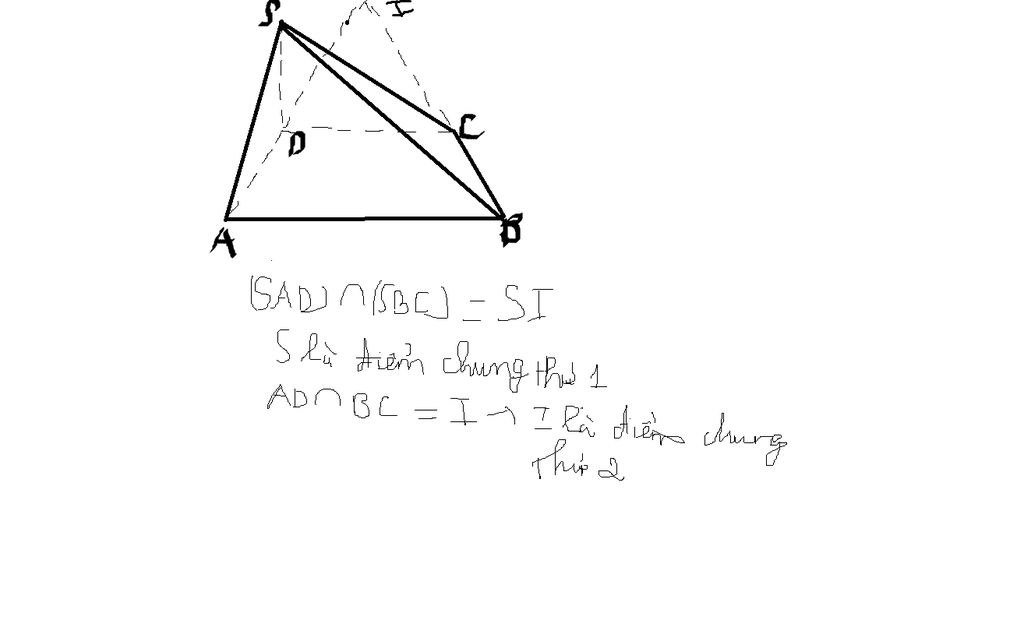 S I
D C
A B
(SAD) ∩ (SBC) = SI
S là điểm chung thứ 1
AD ∩ BC = I → I là điểm chung
thứ 2